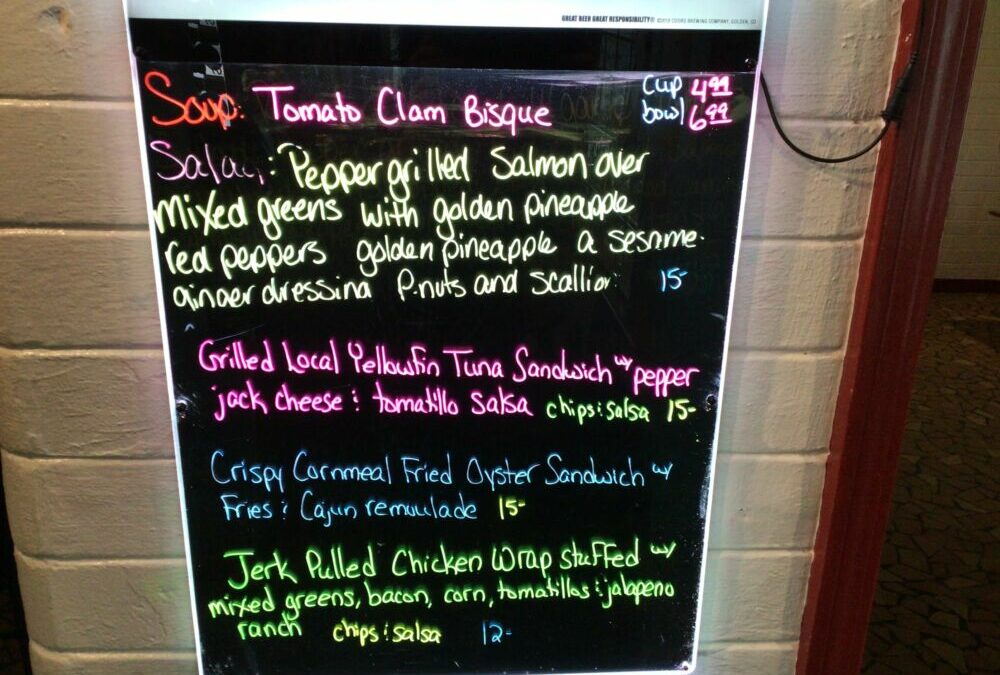 GREAT BEER GREAT RESPONSIBILITY® ©2018 COORS BREWING COMPANY, GOLDEN, CO
Soup: Tomato Clam Bisque cup 4.99
bowl 6.99
Salad: Pepper grilled Salmon over
mixed greens with golden pineapple
red peppers golden pineapple a sesame
ginger dressing P.nuts and scallion 15-
Grilled Local Yellowfin Tuna Sandwich w/ pepper
jack cheese & tomatillo salsa chips & salsa 15-
Crispy Cornmeal Fried Oyster Sandwich w/
Fries & Cajun remoulade 15-
Jerk Pulled Chicken Wrap stuffed w/
mixed greens, bacon, corn, tomatillos & jalapeno
ranch chips & salsa 12-